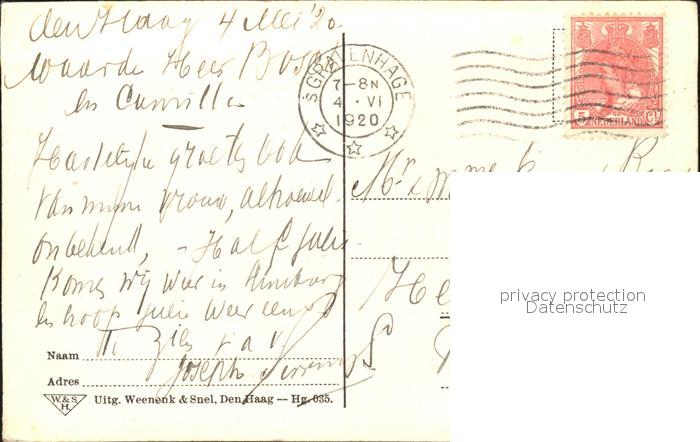 den Haag 4 Mei '20
Waarde Heer
en Camilla
Hartelijke groeten ook
van mijn vrouw, alhoewel
onbekend, - Half Juli
komen wij weer in
en hoop jullie weer eens
te zien
Joseph
Naam
Adres
W. & S. H.
Uitg. Weenenk & Snel, Den Haag — Hg. 035.
'SGRAVENHAGE
7-8N
4 · VI
1920
5 Ct
NEDERLAND
Mr
privacy protection
Datenschutz